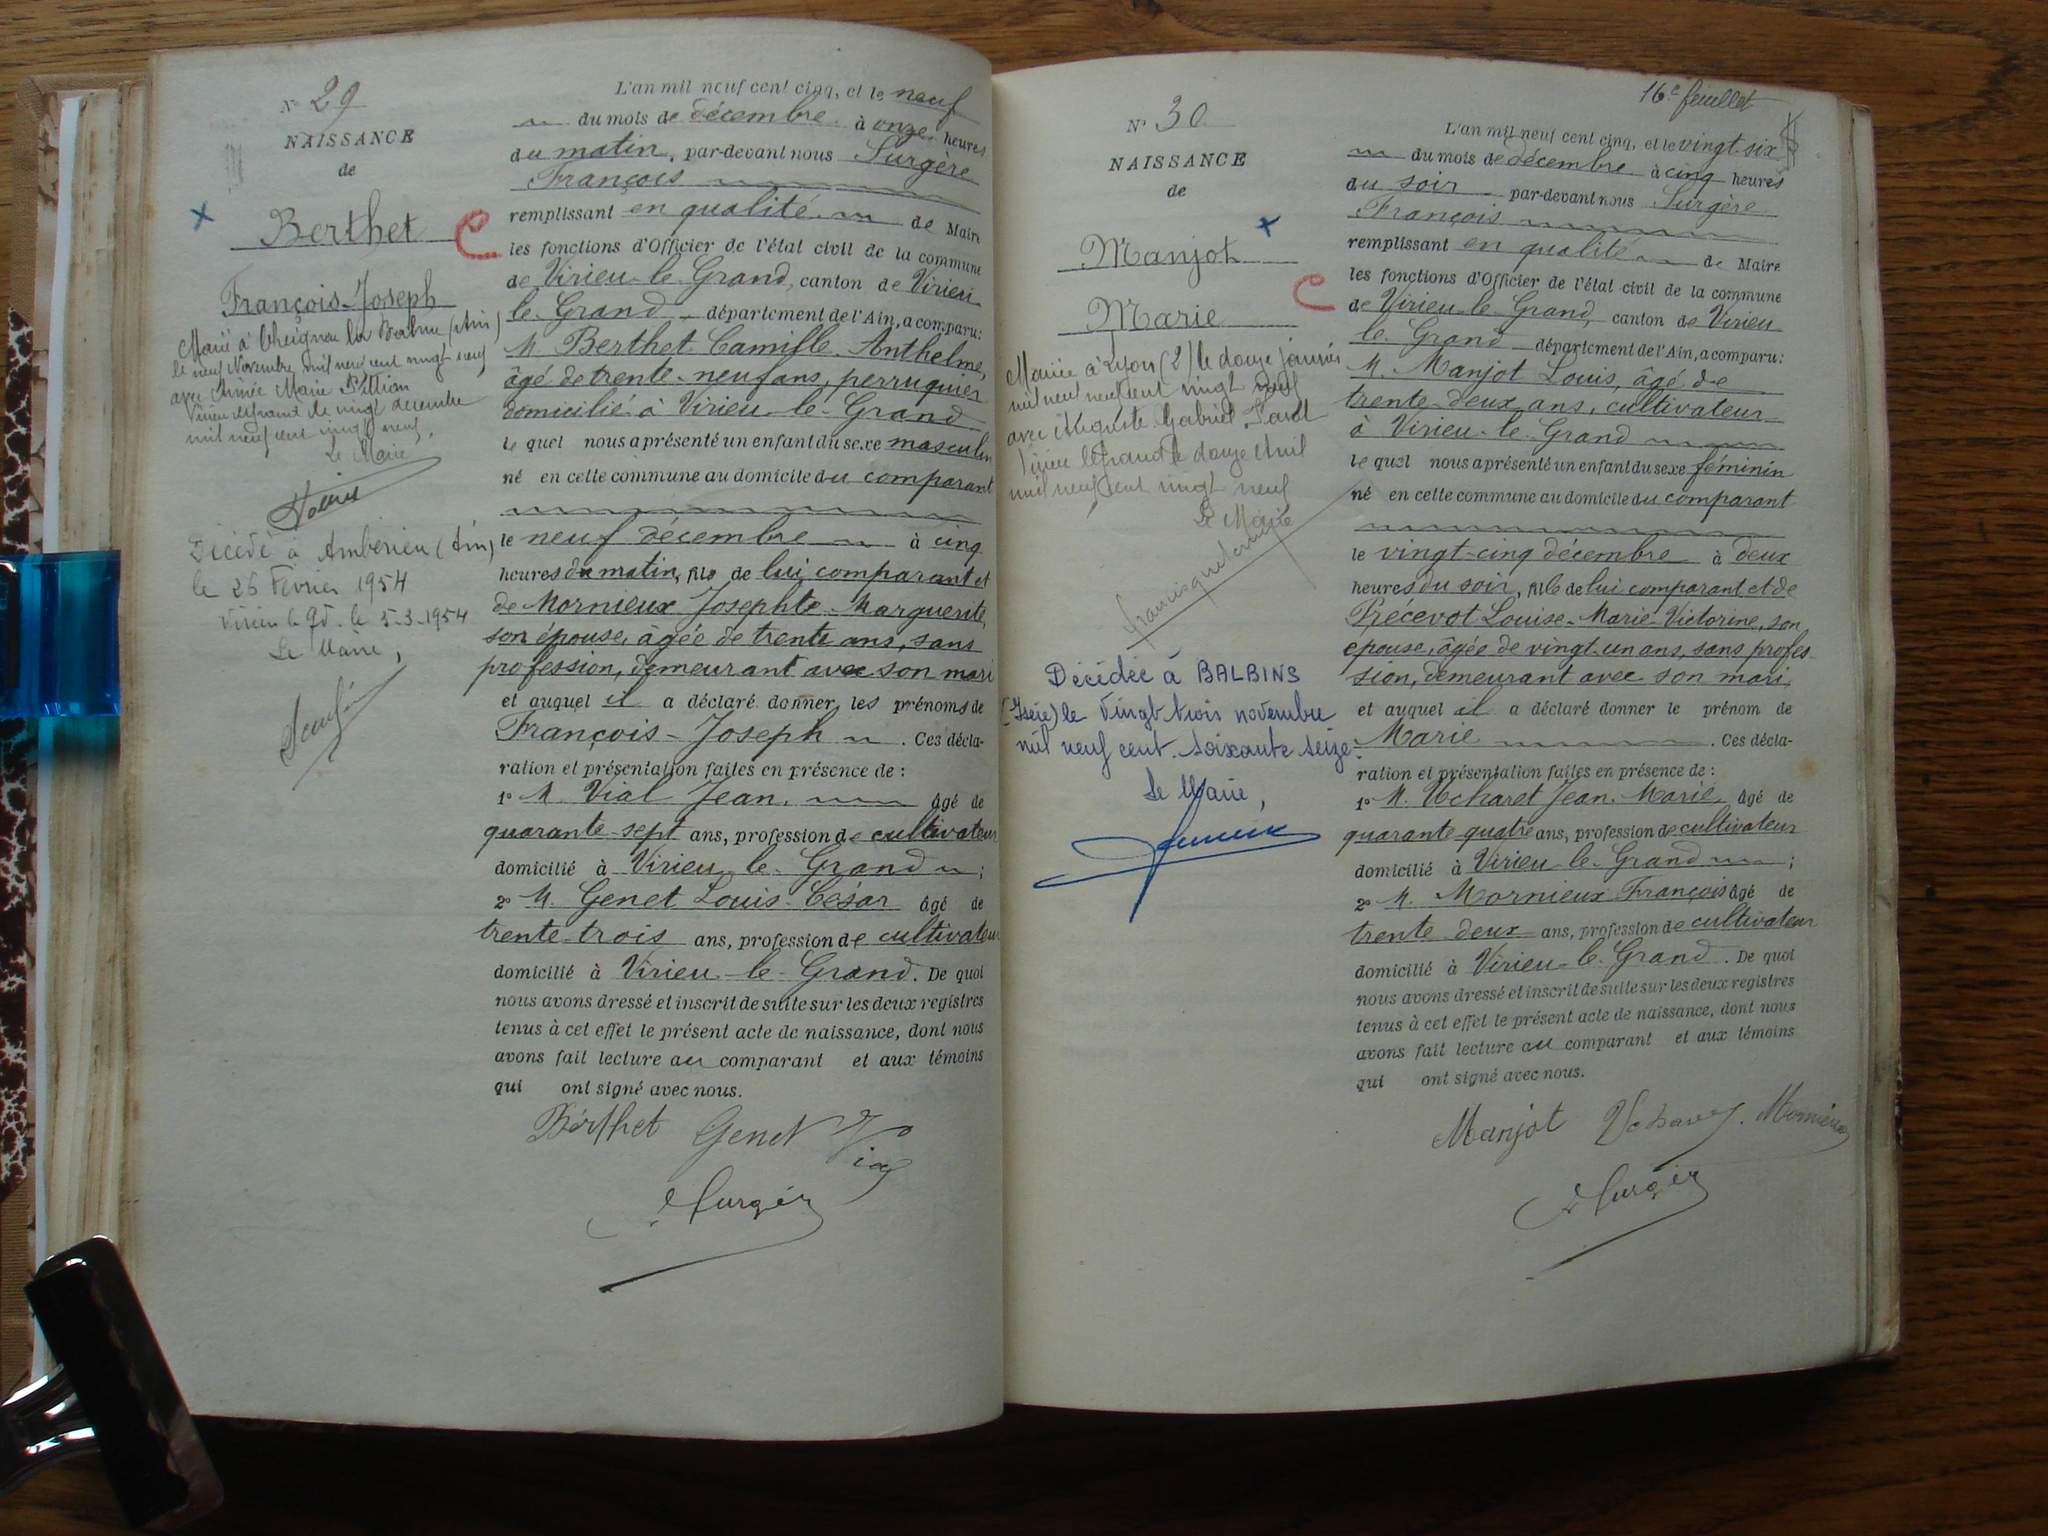 Nº 29
NAISSANCE
de
Berthet
François-Joseph
Marié à Cheignieu la Balme (Ain)
le neuf Novembre mil neuf cent vingt neuf
avec Aimée Marie
Virieu le Grand le vingt decembre
mil neuf cent vingt neuf,
Le Maire
Décédé à Ambérieu (Ain)
le 26 Février 1954
Virieu le Gd. le 5-3-1954
Le Maire,
L'an mil neuf cent cinq, et le neuf
du mois de décembre à onze heures
du matin, par-devant nous Surgère
François
remplissant en qualité de Maire
les fonctions d'Officier de l'état civil de la commune
de Virieu-le-Grand, canton de Virieu
le-Grand département de l'Ain, a comparu:
M. Berthet Camille-Anthelme,
âgé de trente-neuf ans, perruquier
domicilié à Virieu-le-Grand
lequel nous a présenté un enfant du sexe masculin
né en cette commune au domicile du comparant
le neuf décembre à cinq
heures du matin, fils de lui comparant et
de Mornieux Josephte-Marguerite,
son épouse, âgée de trente ans, sans
profession, demeurant avec son mari
et auquel il a déclaré donner les prénoms de
François-Joseph. Ces décla-
ration et présentation faites en présence de :
1º M. Vial Jean, âgé de
quarante-sept ans, profession de cultivateur
domicilié à Virieu-le-Grand ;
2º M. Genet Louis-César âgé de
trente-trois ans, profession de cultivateur
domicilié à Virieu-le-Grand. De quoi
nous avons dressé et inscrit de suite sur les deux registres
tenus à cet effet le présent acte de naissance, dont nous
avons fait lecture au comparant et aux témoins
qui ont signé avec nous.
Berthet Genet Vial
Surgère
16e feuillet
Nº 30
NAISSANCE
de
Manjot
Marie
Mariée à Lyon (2) le douze janvier
mil neuf cent vingt neuf
avec Auguste Gabriel
Virieu le Grand le douze Avril
mil neuf cent vingt neuf
Le Maire
Décédée à BALBINS
(Isère) le vingt trois novembre
mil neuf cent soixante seize.
Le Maire,
L'an mil neuf cent cinq, et le vingt-six
du mois de décembre à cinq heures
du soir par-devant nous Surgère
François
remplissant en qualité de Maire
les fonctions d'Officier de l'état civil de la commune
de Virieu-le-Grand, canton de Virieu
le-Grand département de l'Ain, a comparu:
M. Manjot Louis, âgé de
trente-deux ans, cultivateur
à Virieu-le-Grand
lequel nous a présenté un enfant du sexe féminin
né en cette commune au domicile du comparant
le vingt-cinq décembre à deux
heures du soir, fille de lui comparant et de
Précevot Louise-Marie-Victorine, son
épouse, âgée de vingt-un ans, sans profes-
sion, demeurant avec son mari
et auquel il a déclaré donner le prénom de
Marie. Ces décla-
ration et présentation faites en présence de :
1º M. Ucharet Jean-Marie, âgé de
quarante-quatre ans, profession de cultivateur
domicilié à Virieu-le-Grand ;
2º M. Mornieux François âgé de
trente deux ans, profession de cultivateur
domicilié à Virieu-le-Grand. De quoi
nous avons dressé et inscrit de suite sur les deux registres
tenus à cet effet le présent acte de naissance, dont nous
avons fait lecture au comparant et aux témoins
qui ont signé avec nous.
Manjot Ucharet Mornieux
Surgère